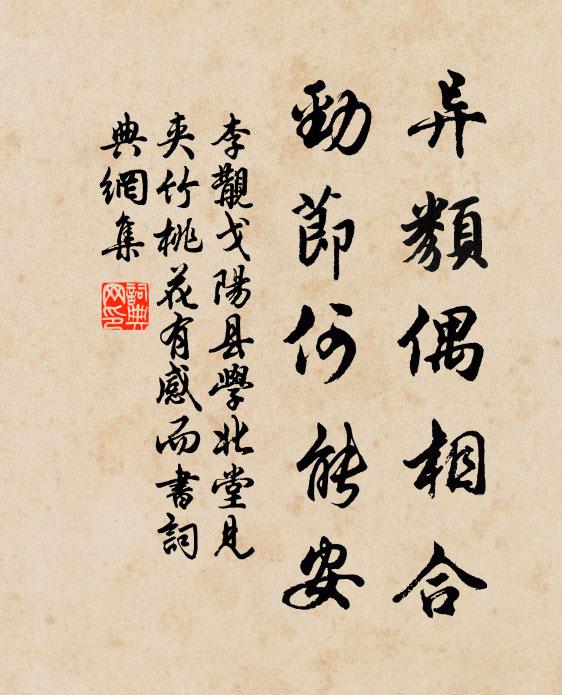 异類偶相合
勁節何能安
李觀弋陽县學北堂見
夾竹桃花有感而書詞
典網集
詞典
网印